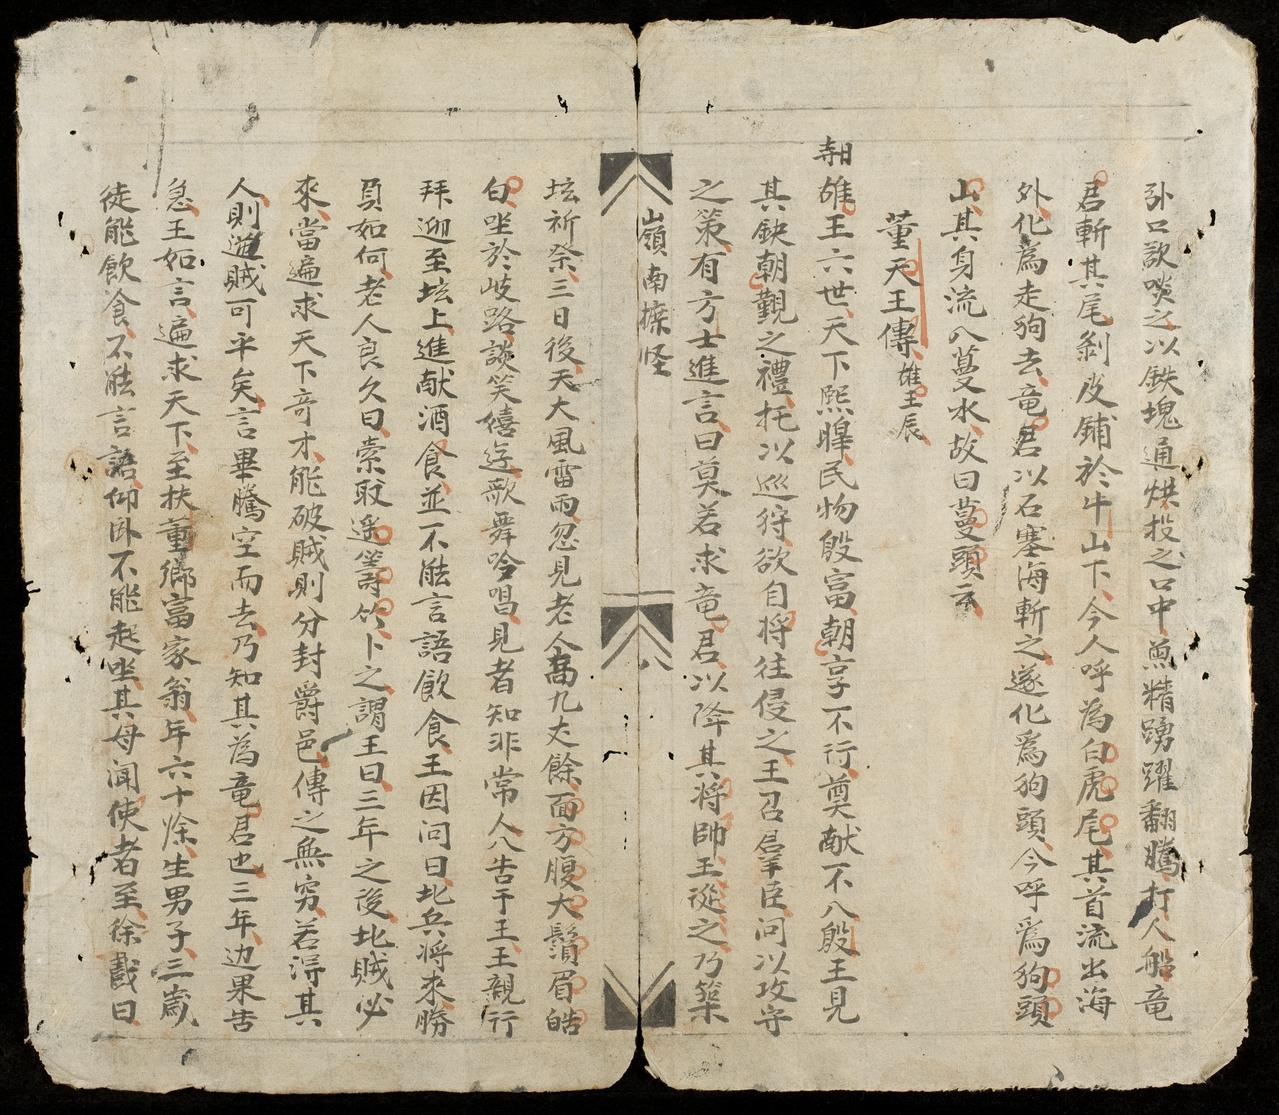 弘口欲啖之以鉄塊通烘投之口中魚精踴躍翻騰打人船竜
君斬其尾剝皮鋪於牛山下今人呼為白虎尾其首流出海
外化為走狗去竜君以石塞海斬之遂化為狗頭今呼為狗頭
山其身流入蔓水故曰蔓頭云
董天王傳 雄王辰
雄王六世天下熙皥民物殷富朝享不行奠献不入殷王見
其缺朝覲之禮托以巡狩欲自将往侵之王召羣臣问以攻守
之策有方士進言曰莫若求竜君以降其将帥王從之乃築
嶺南摭怪
八
坛祈祭三日後天大風雷雨忽見老人高九丈餘面方腹大鬚眉皓
白坐於岐路談笑嬉遊歌舞吟唱見者知非常人入告于王王親行
拜迎至坛上進献酒食並不能言語飲食王因问曰北兵将來勝
負如何老人良久曰索取遥籌以卜之謂王曰三年之後北賊必
來當遍求天下奇才能破賊則分封爵邑傳之無穷若得其
人則賊可平矣言畢騰空而去乃知其為竜君也三年边果告
急王如言遍求天下至扶董鄉富家翁年六十餘生男子三歲
徒能飲食不能言語仰卧不能起坐其母闻使者至徐戱曰